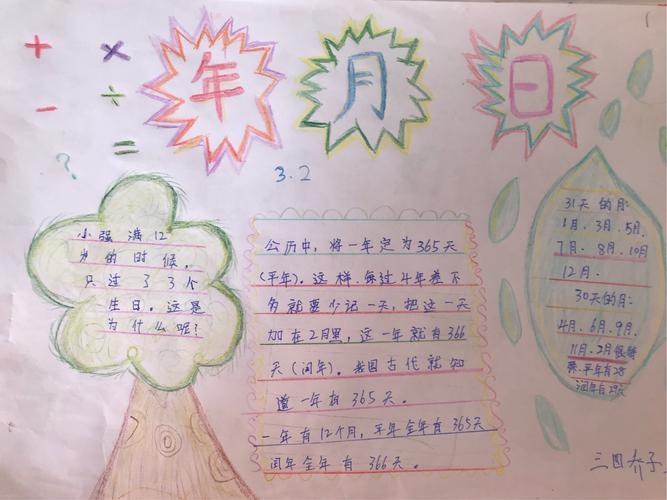 + × 年 月 日
- ÷
=
?
3.2
小强满12
岁的时候,
只过了3个
生日。这是
为什么呢?
公历中,将一年定为365天
(平年)。这样.每过4年差不
多就要少记一天,把这一天
加在2月里,这一年就有366
天(闰年)。我国古代就知
道一年有365天。
一年有12个月,平年全年有365天
闰年全年有366天。
31天的月:
1月、3月、5月、
7月、8月、10月
12月.
30天的月:
4月、6月、9月、
11月、2月
平年有28
闰年有29天
三四